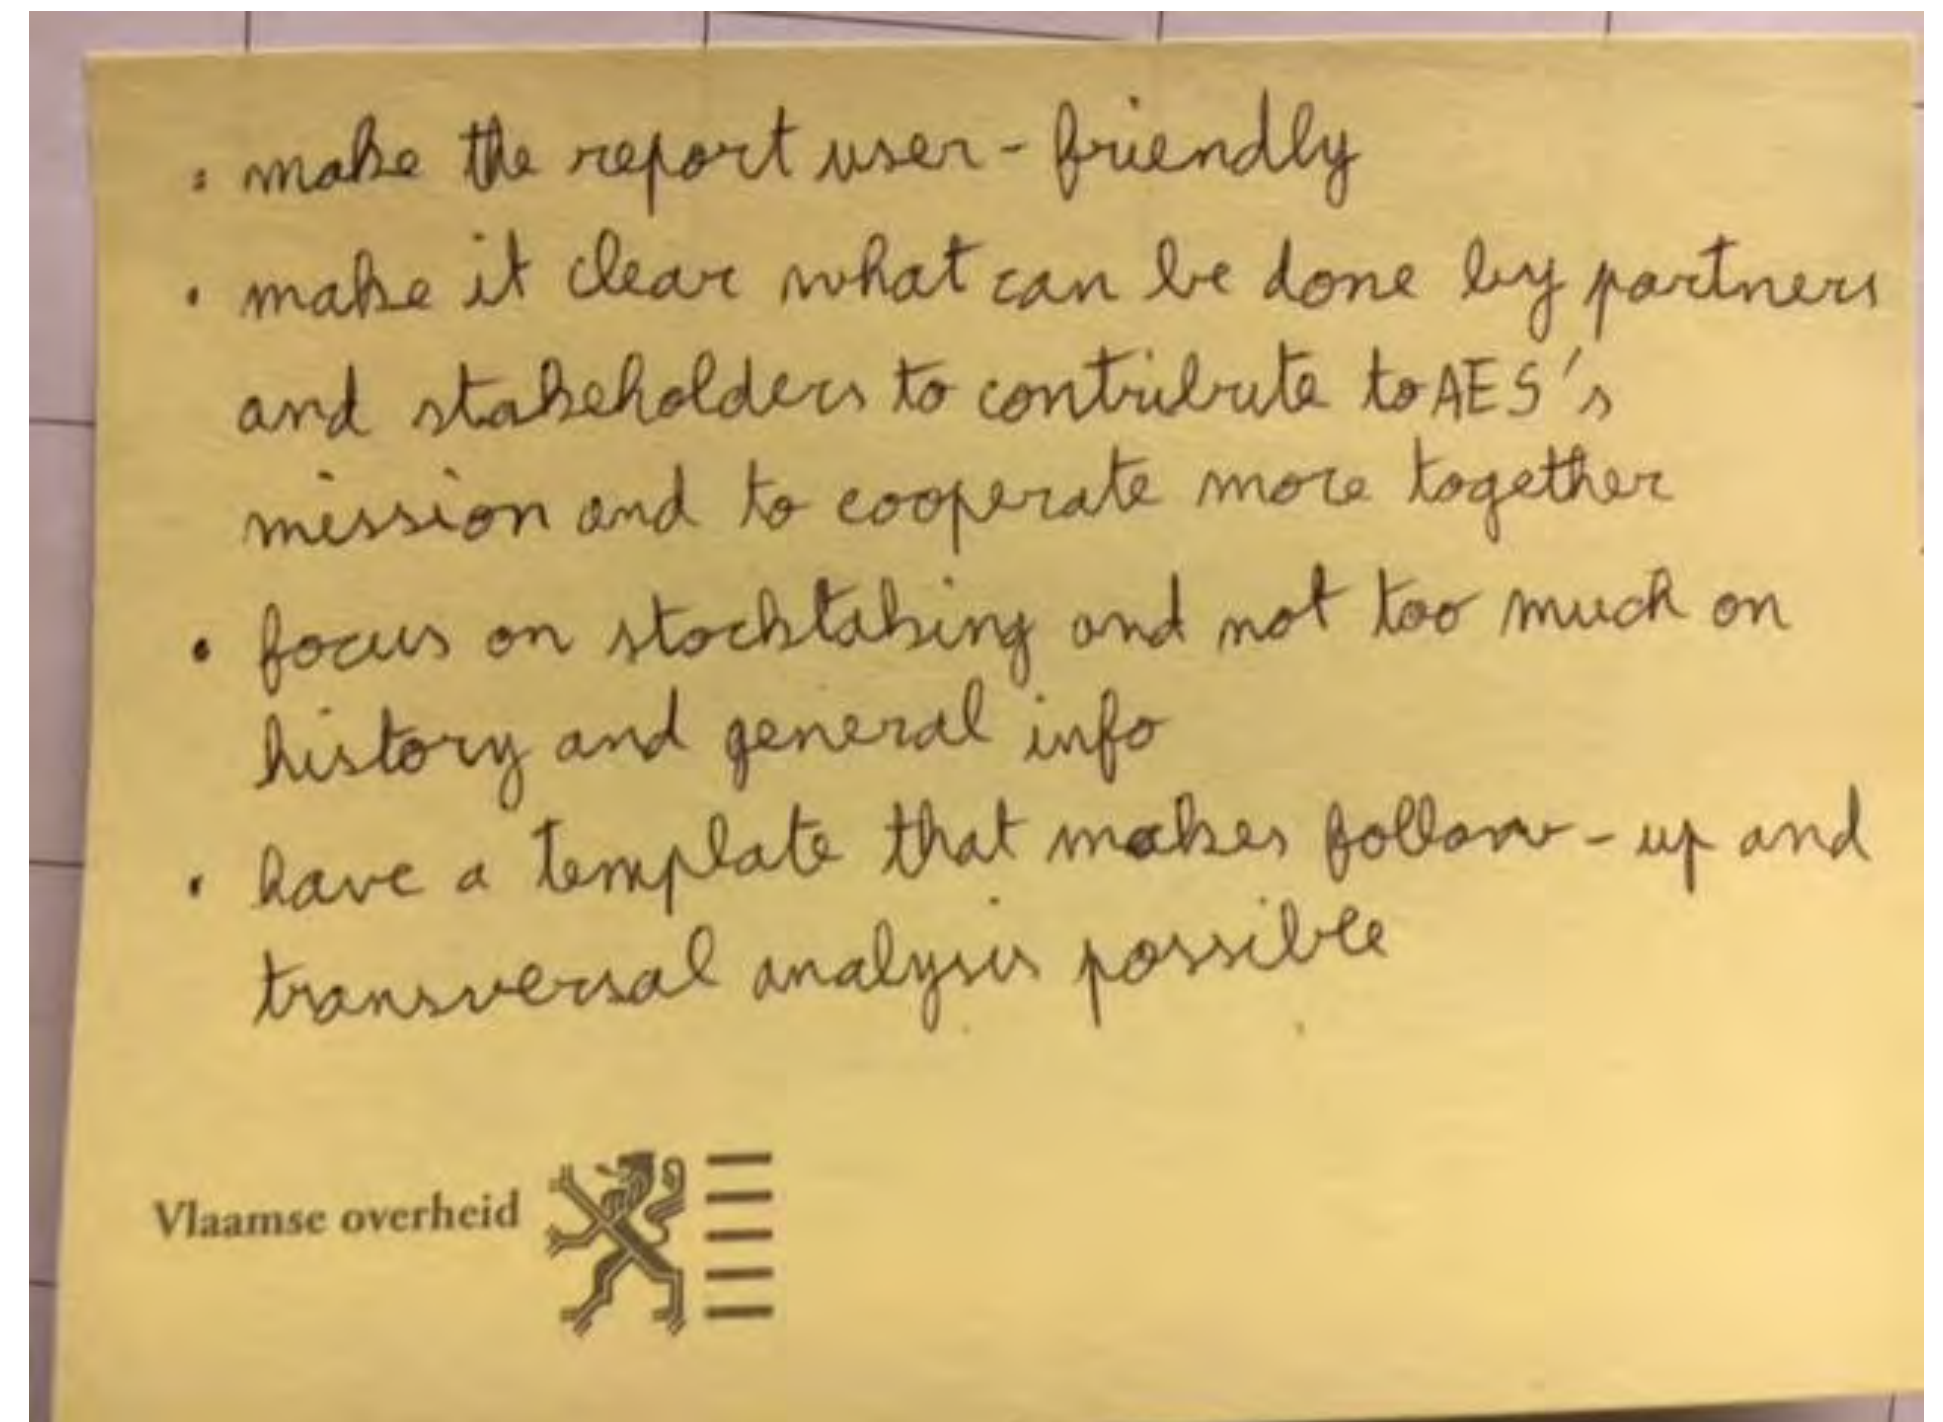 • make the report user-friendly
• make it clear what can be done by partners
and stakeholders to contribute to AES's
mission and to cooperate more together
• focus on stocktaking and not too much on
history and general info
• have a template that makes follow-up and
transversal analysis possible
Vlaamse overheid